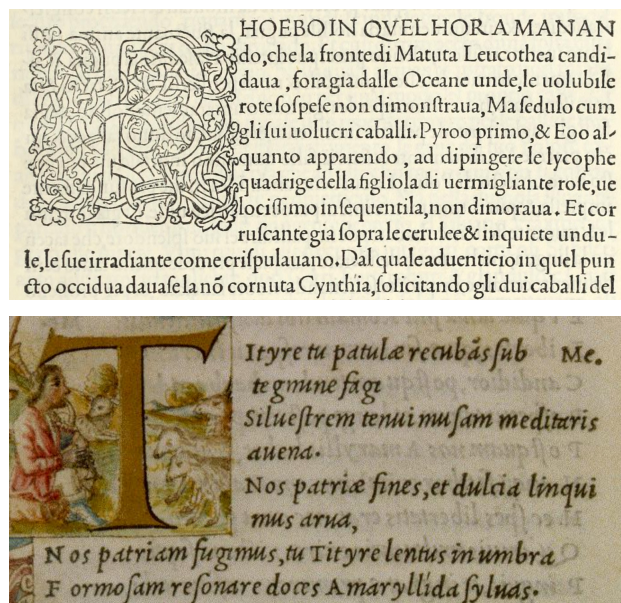 PHOEBO IN QVEL HORA MANAN
do, che la fronte di Matuta Leucothea candi-
daua, fora gia dalle Oceane unde, le uolubile
rote sospese non dimonstraua, Ma sedulo cum
gli sui uolucri caballi. Pyroo primo, & Eoo al-
quanto apparendo, ad dipingere le lycophe
quadrige della figliola di uermigliante rose, ue
locissimo insequentila, non dimoraua. Et cor
ruscante gia sopra le cerulee & inquiete undu-
le, le sue irradiante come crispulauano. Dal quale aduenticio in quel pun
cto occidua dauase la nõ cornuta Cynthia, solicitando gli dui caballi del
Tityre tu patulæ recubãs sub Me.
tegmine fagi
Siluestrem tenui musam meditaris
auena.
Nos patriæ fines, et dulcia linqui
mus arua,
Nos patriam fugimus, tu Tityre lentus in umbra
Formosam resonare doces Amaryllida syluas.